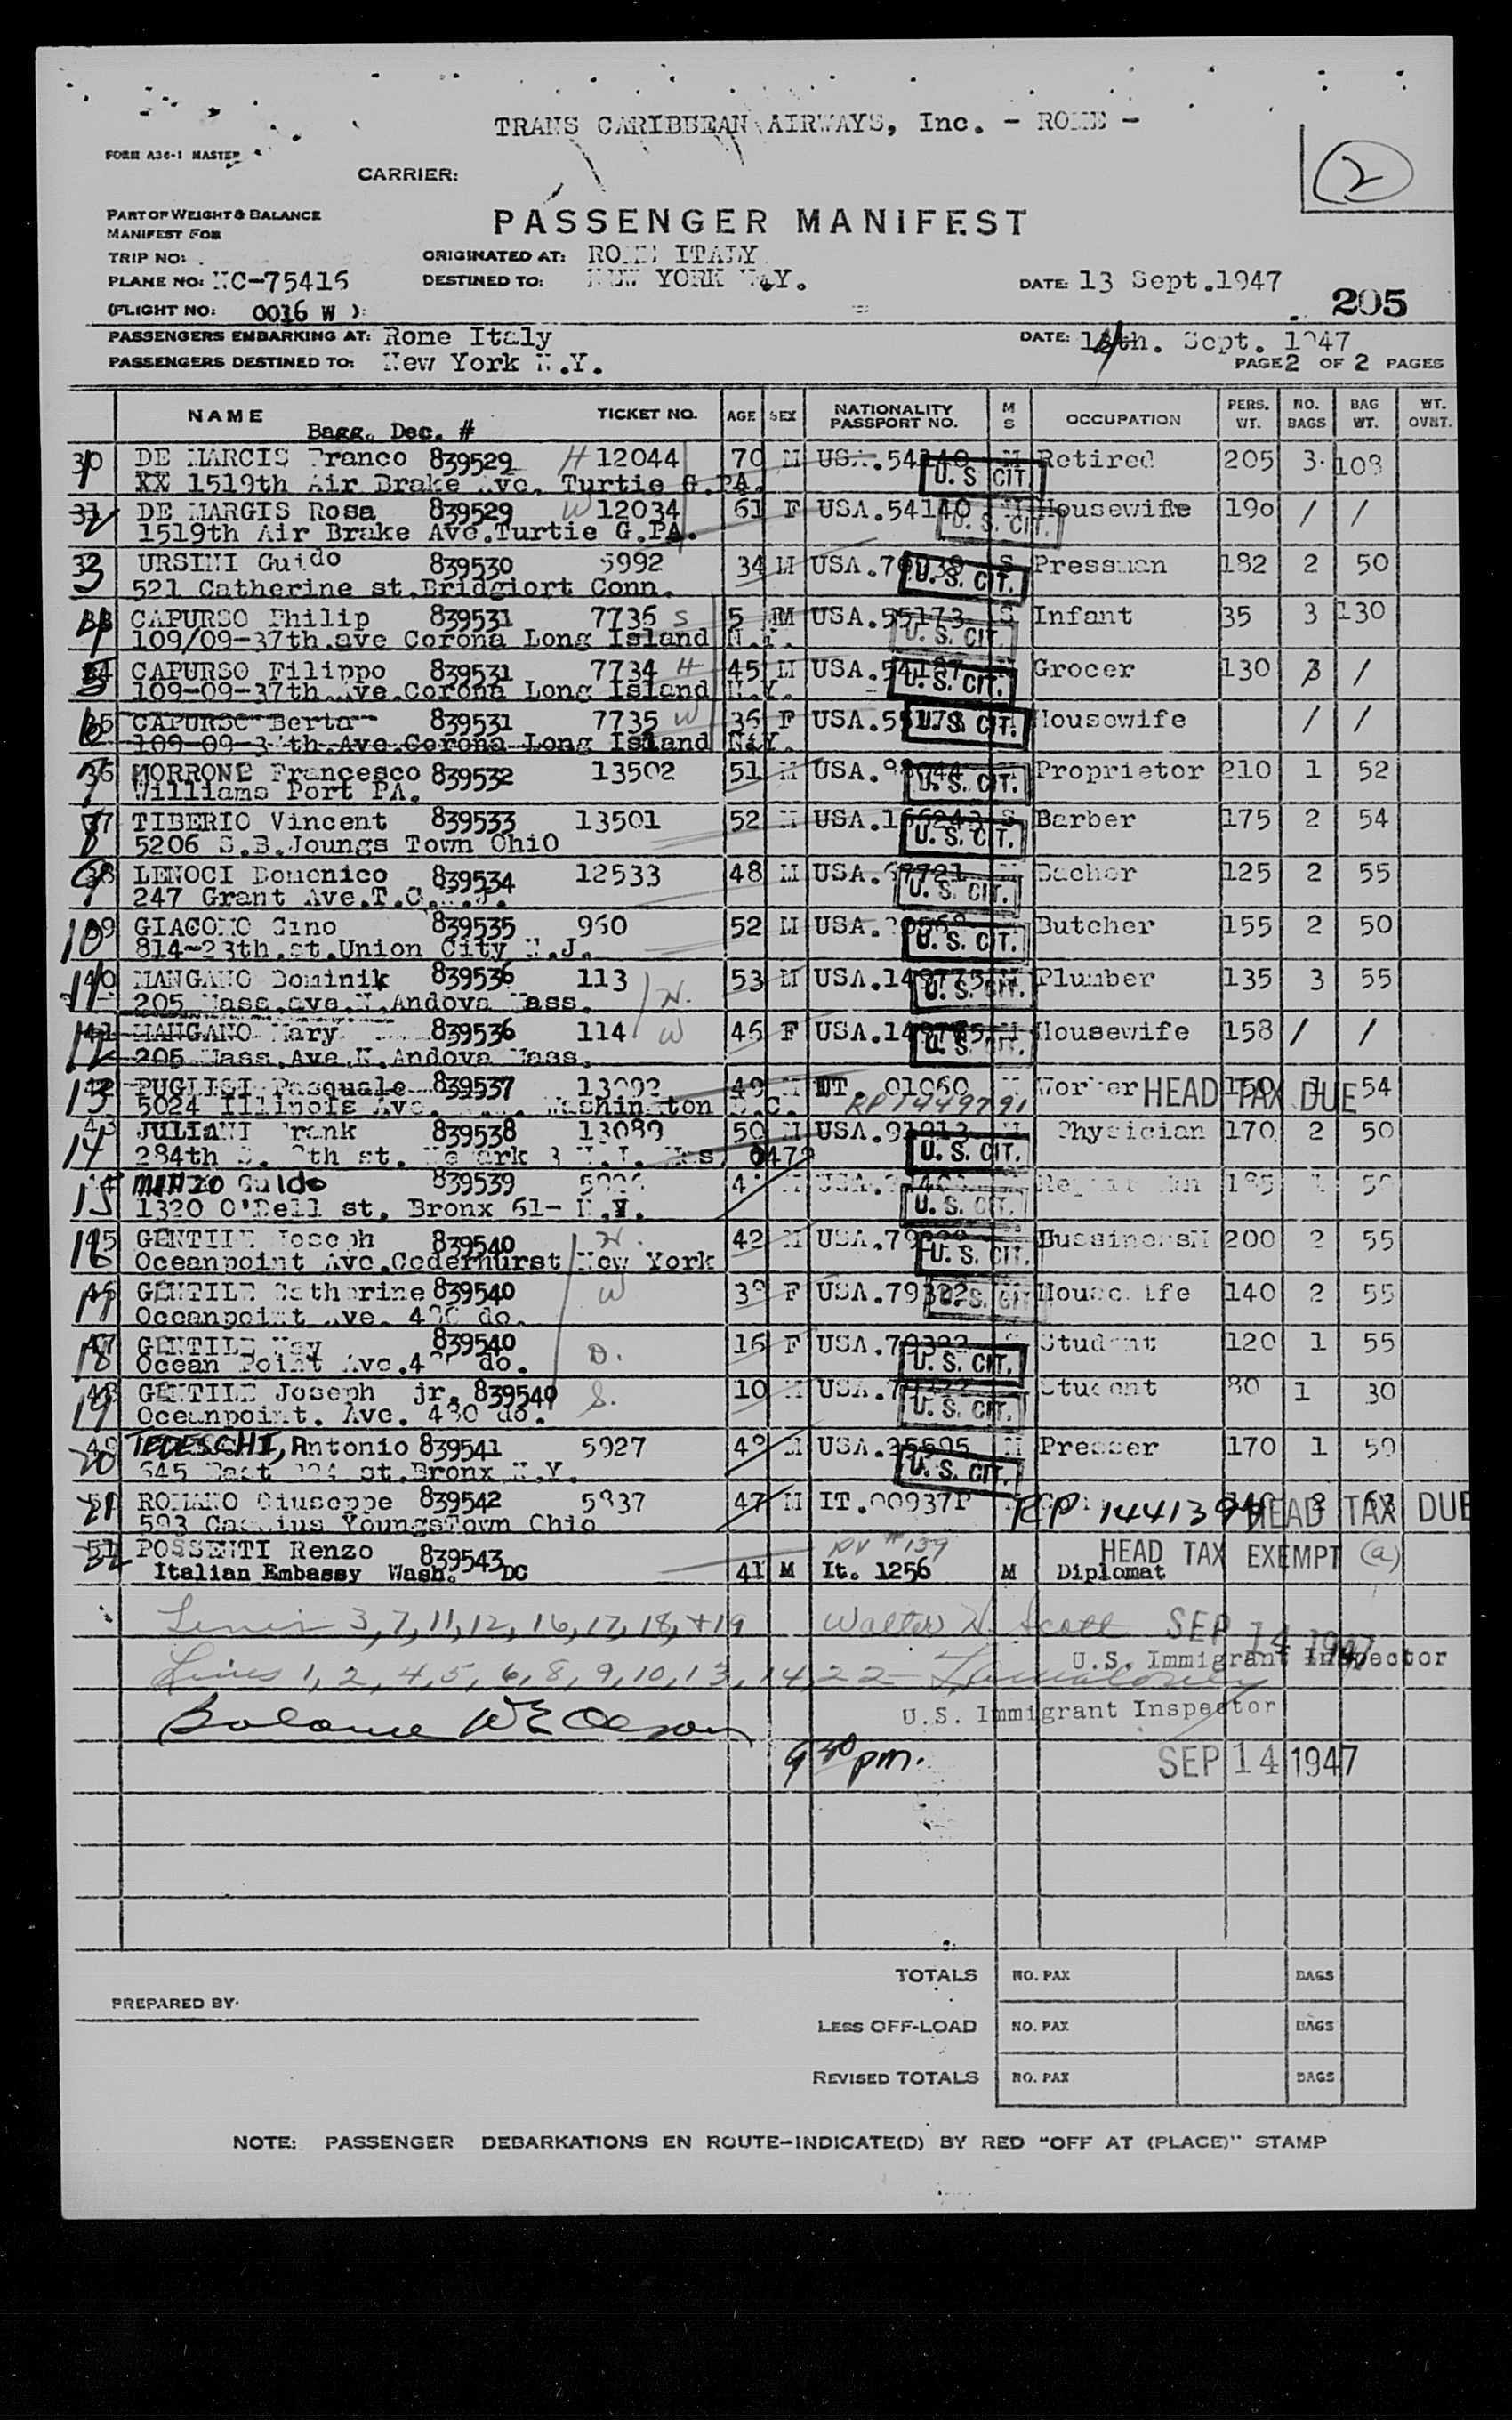 TRANS CARIBBEAN AIRWAYS, Inc. - ROME -
FORM A36-1 MASTER
CARRIER:
2
PART OF WEIGHT & BALANCE
MANIFEST FOR
PASSENGER MANIFEST
TRIP NO:
ORIGINATED AT: ROME ITALY
PLANE NO: NC-75415 DESTINED TO: NEW YORK N.Y. DATE: 13 Sept.1947
(FLIGHT NO: 0036 W ): 205
PASSENGERS EMBARKING AT: Rome Italy DATE: 14th. Sept. 1947
PASSENGERS DESTINED TO: New York N.Y. PAGE 2 OF 2 PAGES
NAME Bagg. Dec. # TICKET NO. AGE SEX NATIONALITY PASSPORT NO. M S OCCUPATION PERS. WT. NO. BAGS BAG WT. WT. OVNT.
30 1 DE MARCIS Franco 839529 H 12044 70 M USA.54140 M Retired 205 3 108
XX 1519th Air Brake Ave. Turtie G.PA. U.S. CIT.
31 2 DE MARGIS Rosa 839529 W 12034 61 F USA.54140 Housewife 190 / /
1519th Air Brake Ave.Turtie G.PA. U.S. CIT.
32 3 URSINI Guido 839530 5992 34 M USA. S Pressman 182 2 50
521 Catherine st.Bridgiort Conn. U.S. CIT.
33 4 CAPURSO Philip 839531 7736 S 5 M USA.55173 S Infant 35 3 130
109/09-37th.ave Corona Long Island N.Y. U.S. CIT.
34 5 CAPURSO Filippo 839531 7734 H 45 M USA. Grocer 130 3 /
109-09-37th.Ave.Corona Long Island N.Y. U.S. CIT.
35 6 CAPURSO Berta 839531 7735 W 36 F USA. Housewife / /
109-09-37th.Ave.Corona Long Island N.Y. U.S. CIT.
36 7 MORRONE Francesco 839532 13502 51 M USA. Proprietor 210 1 52
Williams Port PA. U.S. CIT.
37 8 TIBERIO Vincent 839533 13501 52 M USA. S Barber 175 2 54
5206 S.B.Joungs Town Ohio U.S. CIT.
38 9 LENOCI Domenico 839534 12533 48 M USA.67721 125 2 55
247 Grant Ave. U.S. CIT.
39 10 GIACOMO Gino 839535 960 52 M USA. Butcher 155 2 50
814-23th.st.Union City N.J. U.S. CIT.
40 11 MANGANO Dominik 839536 113 H. 53 M USA.149775 M Plumber 135 3 55
205 Mass.ave.N.Andova Mass. U.S. CIT.
41 12 MANGANO Mary 839536 114 W 46 F USA. Housewife 158 / /
205 Mass.Ave.N.Andova Mass. U.S. CIT.
13 PUGLISI Pasquale 839537 13092 49 M IT 01060 Worker 150 1 54 HEAD TAX DUE
5024 Illinois Ave. Washington D.C. RP 1449791
43 14 JULIANI Frank 839538 13089 50 M USA. Physician 170 2 50
284th st. Newark 3 N.J. U.S. CIT.
15 MINZO Guido 839539 USA.
1320 O'Dell st. Bronx 61- N.Y. U.S. CIT.
45 16 GENTILE Joseph 839540 H. 42 M USA. BussinessM 200 2 55
Oceanpoint Ave.Cederhurst New York U.S. CIT.
46 17 GENTILE Catherine 839540 W F USA.79322 Housewife 140 2 55
Occanpoint Ave. do. U.S. CIT.
47 18 GENTILE May 839540 D. 16 F USA.79322 S Student 120 1 55
Ocean Point Ave. do. U.S. CIT.
48 19 GENTILE Joseph jr. 839540 S. 10 M USA.79322 Student 80 1 30
Oceanpoint. Ave. 480 do. U.S. CIT.
49 20 TEDESCHI, Antonio 839541 5927 M USA. M Presser 170 1 59
645 East st.Bronx N.Y. U.S. CIT.
50 21 ROMANO Giuseppe 839542 5837 47 M IT.00937P RP 1441394 HEAD TAX DUE
593 Youngstown Ohio
51 22 POSSENTI Renzo 839543 RV #139 HEAD TAX EXEMPT (a)
Italian Embassy Wash. DC 41 M It. 1256 M Diplomat
Lines 3, 7, 11, 12, 16, 17, 18, + 19 Walter H. Scott SEP 14 1947
U.S. Immigrant Inspector
Lines 1, 2, 4, 5, 6, 8, 9, 10, 13, 14, 22 -
U.S. Immigrant Inspector
Balance
9 30 pm. SEP 14 1947
TOTALS NO. PAX BAGS
PREPARED BY.
LESS OFF-LOAD NO. PAX BAGS
REVISED TOTALS NO. PAX BAGS
NOTE: PASSENGER DEBARKATIONS EN ROUTE-INDICATE(D) BY RED "OFF AT (PLACE)" STAMP